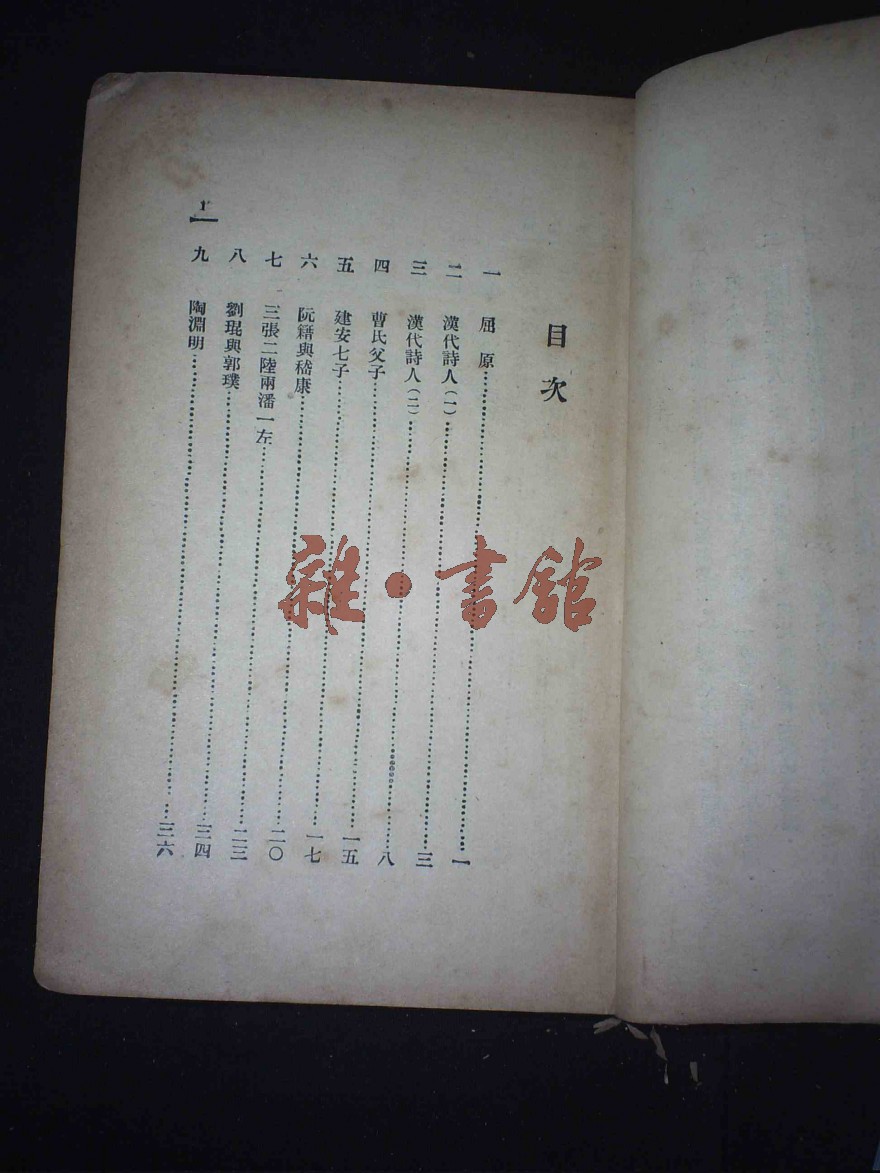 目次
一 屈原……一
二 漢代詩人(一)……三
三 漢代詩人(二)……八
四 曹氏父子……一五
五 建安七子……一七
六 阮籍與嵇康……二〇
七 三張二陸兩潘一左……二三
八 劉琨與郭璞……三四
九 陶淵明……三六
1
雜·書館